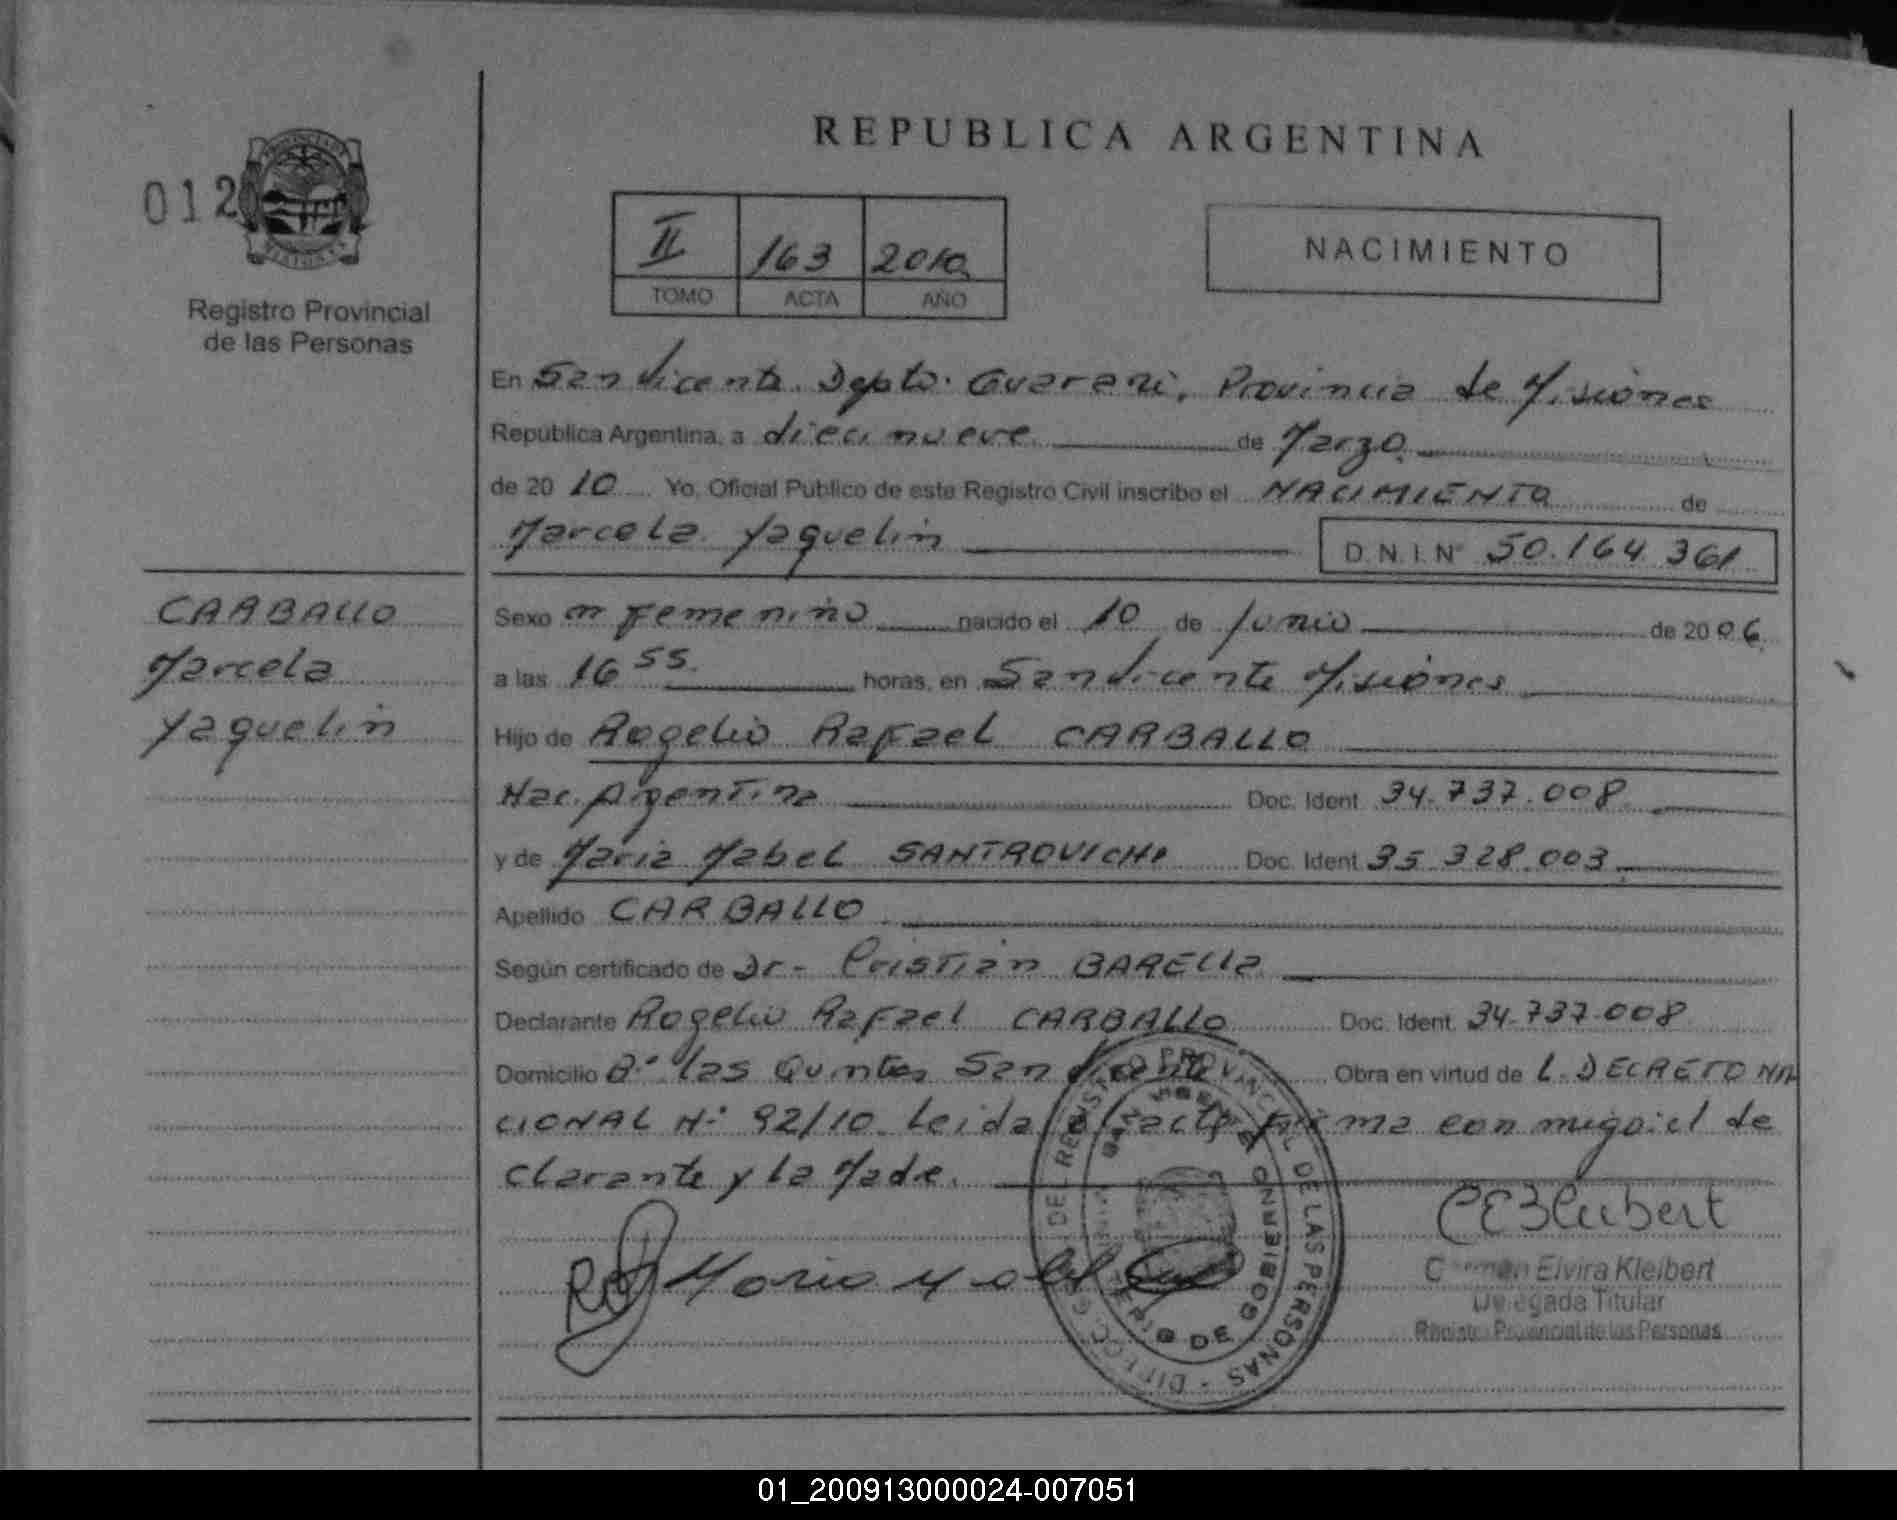 REPUBLICA ARGENTINA
012
Registro Provincial
de las Personas
II 163 2010
TOMO ACTA AÑO
NACIMIENTO
En San Vicente. Depto. Guarani, Provincia de Misiones
República Argentina, a diecinueve de Marzo
de 2010 Yo, Oficial Público de este Registro Civil inscribo el NACIMIENTO de
Marcela Yaquelin D.N.I. Nº 50.164.361
CARBALLO
Marcela
Yaquelin
Sexo femenino nacido el 10 de Junio de 2006
a las 16 55 horas, en San Vicente Misiones
Hijo de Rogelio Rafael CARBALLO
Nac. Argentina Doc. Ident. 34.737.008
y de Maria Mabel SANTROVICHI Doc. Ident. 35.328.003
Apellido CARBALLO
Según certificado de Dr. Cristian BARELLA
Declarante Rogelio Rafael CARBALLO Doc. Ident. 34.737.008
Domicilio Bº las Quintas San Vicente Obra en virtud de L. DECRETO NA
CIONAL Nº 92/10. Leida el acta firma con migo el de
clarante y la Madre.
Maria Mabel
CEKleibert
Carmen Elvira Kleibert
Delegada Titular
Registro Provincial de las Personas
DEL REGISTRO PROVINCIAL DE LAS PERSONAS
DE GOBIERNO
01_200913000024-007051